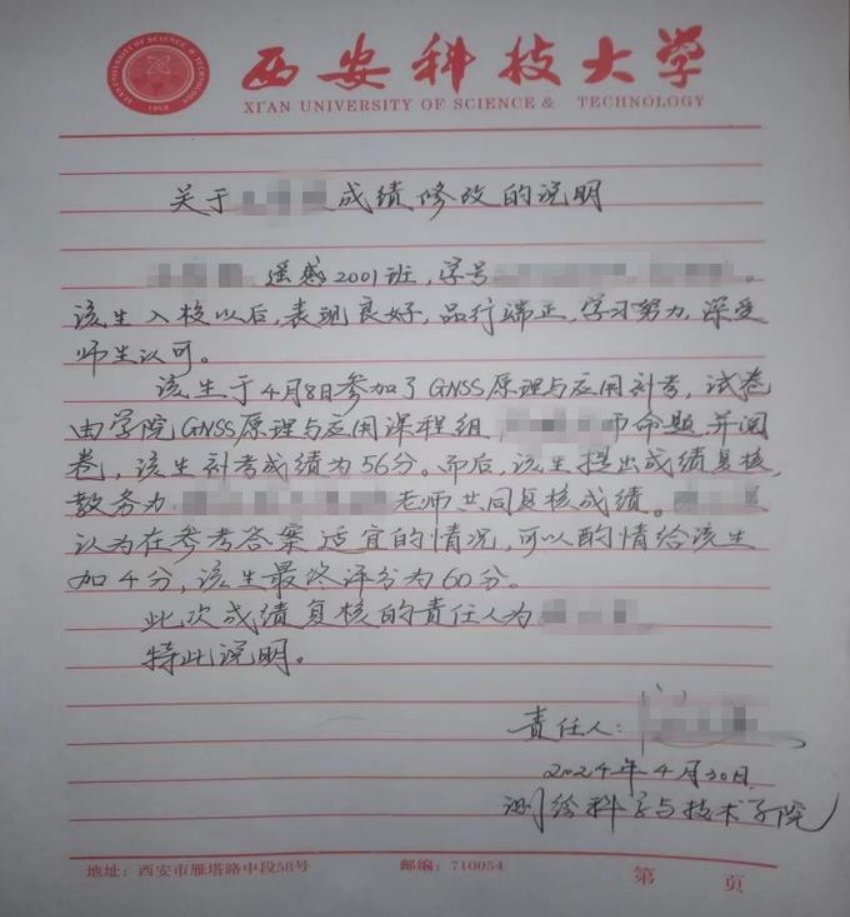 XI'AN UNIVERSITY OF SCIENCE & TECHNOLOGY
1958
西安科技大学
XI'AN UNIVERSITY OF SCIENCE & TECHNOLOGY
关于 成绩修改的说明
遥感2001班,学号 。
该生入校以后,表现良好,品行端正,学习努力,深受
师生认可。
该生于4月8日参加了GNSS原理与应用补考,试卷
由学院GNSS原理与应用课程组, 命题并阅
卷,该生补考成绩为56分。而后,该生提出成绩复核,
教务办 老师共同复核成绩。
认为在参考答案适宜的情况,可以酌情给该生
加4分,该生最终评分为60分。
此次成绩复核的责任人为
特此说明。
责任人:
2024年4月30日
测绘科学与技术学院
地址:西安市雁塔路中段58号 邮编:710054 第 页